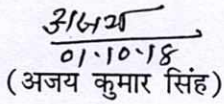 अजय
01.10.18
(अजय कुमार सिंह)